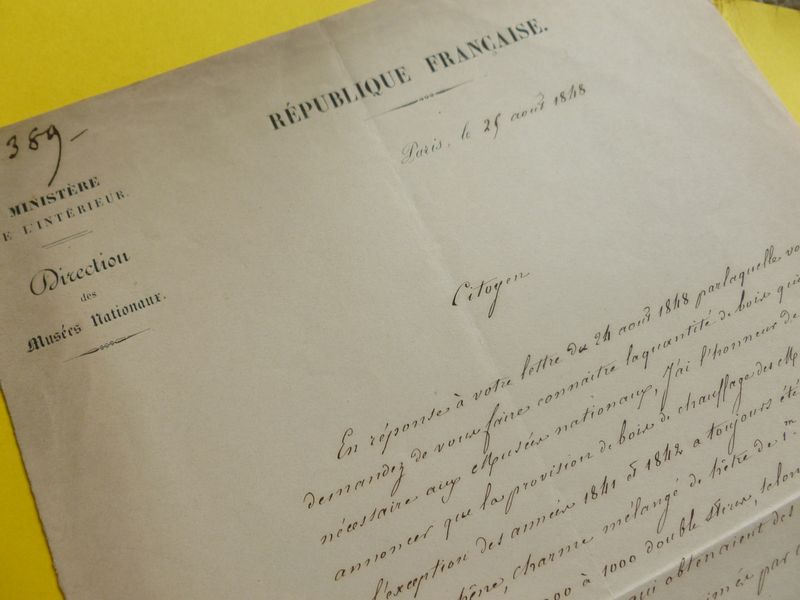 RÉPUBLIQUE FRANÇAISE.
389
Paris, le 25 août 1848
MINISTÈRE
E L'INTÉRIEUR.
Direction
des
Musées Nationaux.
Citoyen
En réponse à votre lettre du 24 août 1848 par laquelle vo
demandez de vous faire connaitre la quantité de bois qui
nécessaire aux Musées nationaux, J'ai l'honneur de
annoncer que la provision de bois de chauffage des M
l'exception des années 1841 et 1842 a toujours été
hêne, charme mélangé de hêtre de 1.m
à 1000 double stères, selon
qui obtenaient des